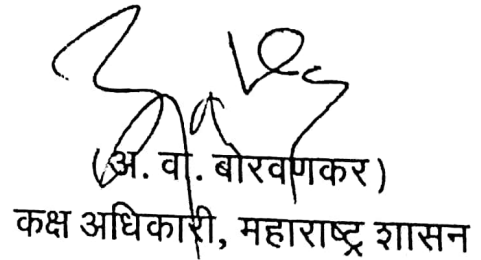 (अ. वा. बोरवणकर)
कक्ष अधिकारी, महाराष्ट्र शासन